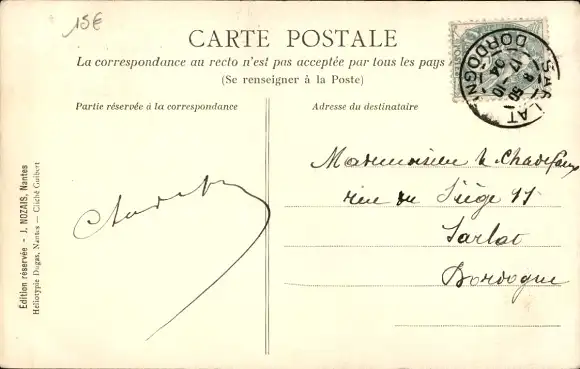 15€
CARTE POSTALE
La correspondance au recto n'est pas acceptée par tous les pays
(Se renseigner à la Poste)
Partie réservée à la correspondance
Adresse du destinataire
SARLAT
DORDOGNE
Mademoiselle Chadefaux
rue du Siège 11
Sarlat
Dordogne
Edition réservée - J. NOZAIS, Nantes
Héliotypie Dugas, Nantes — Cliché Guibert